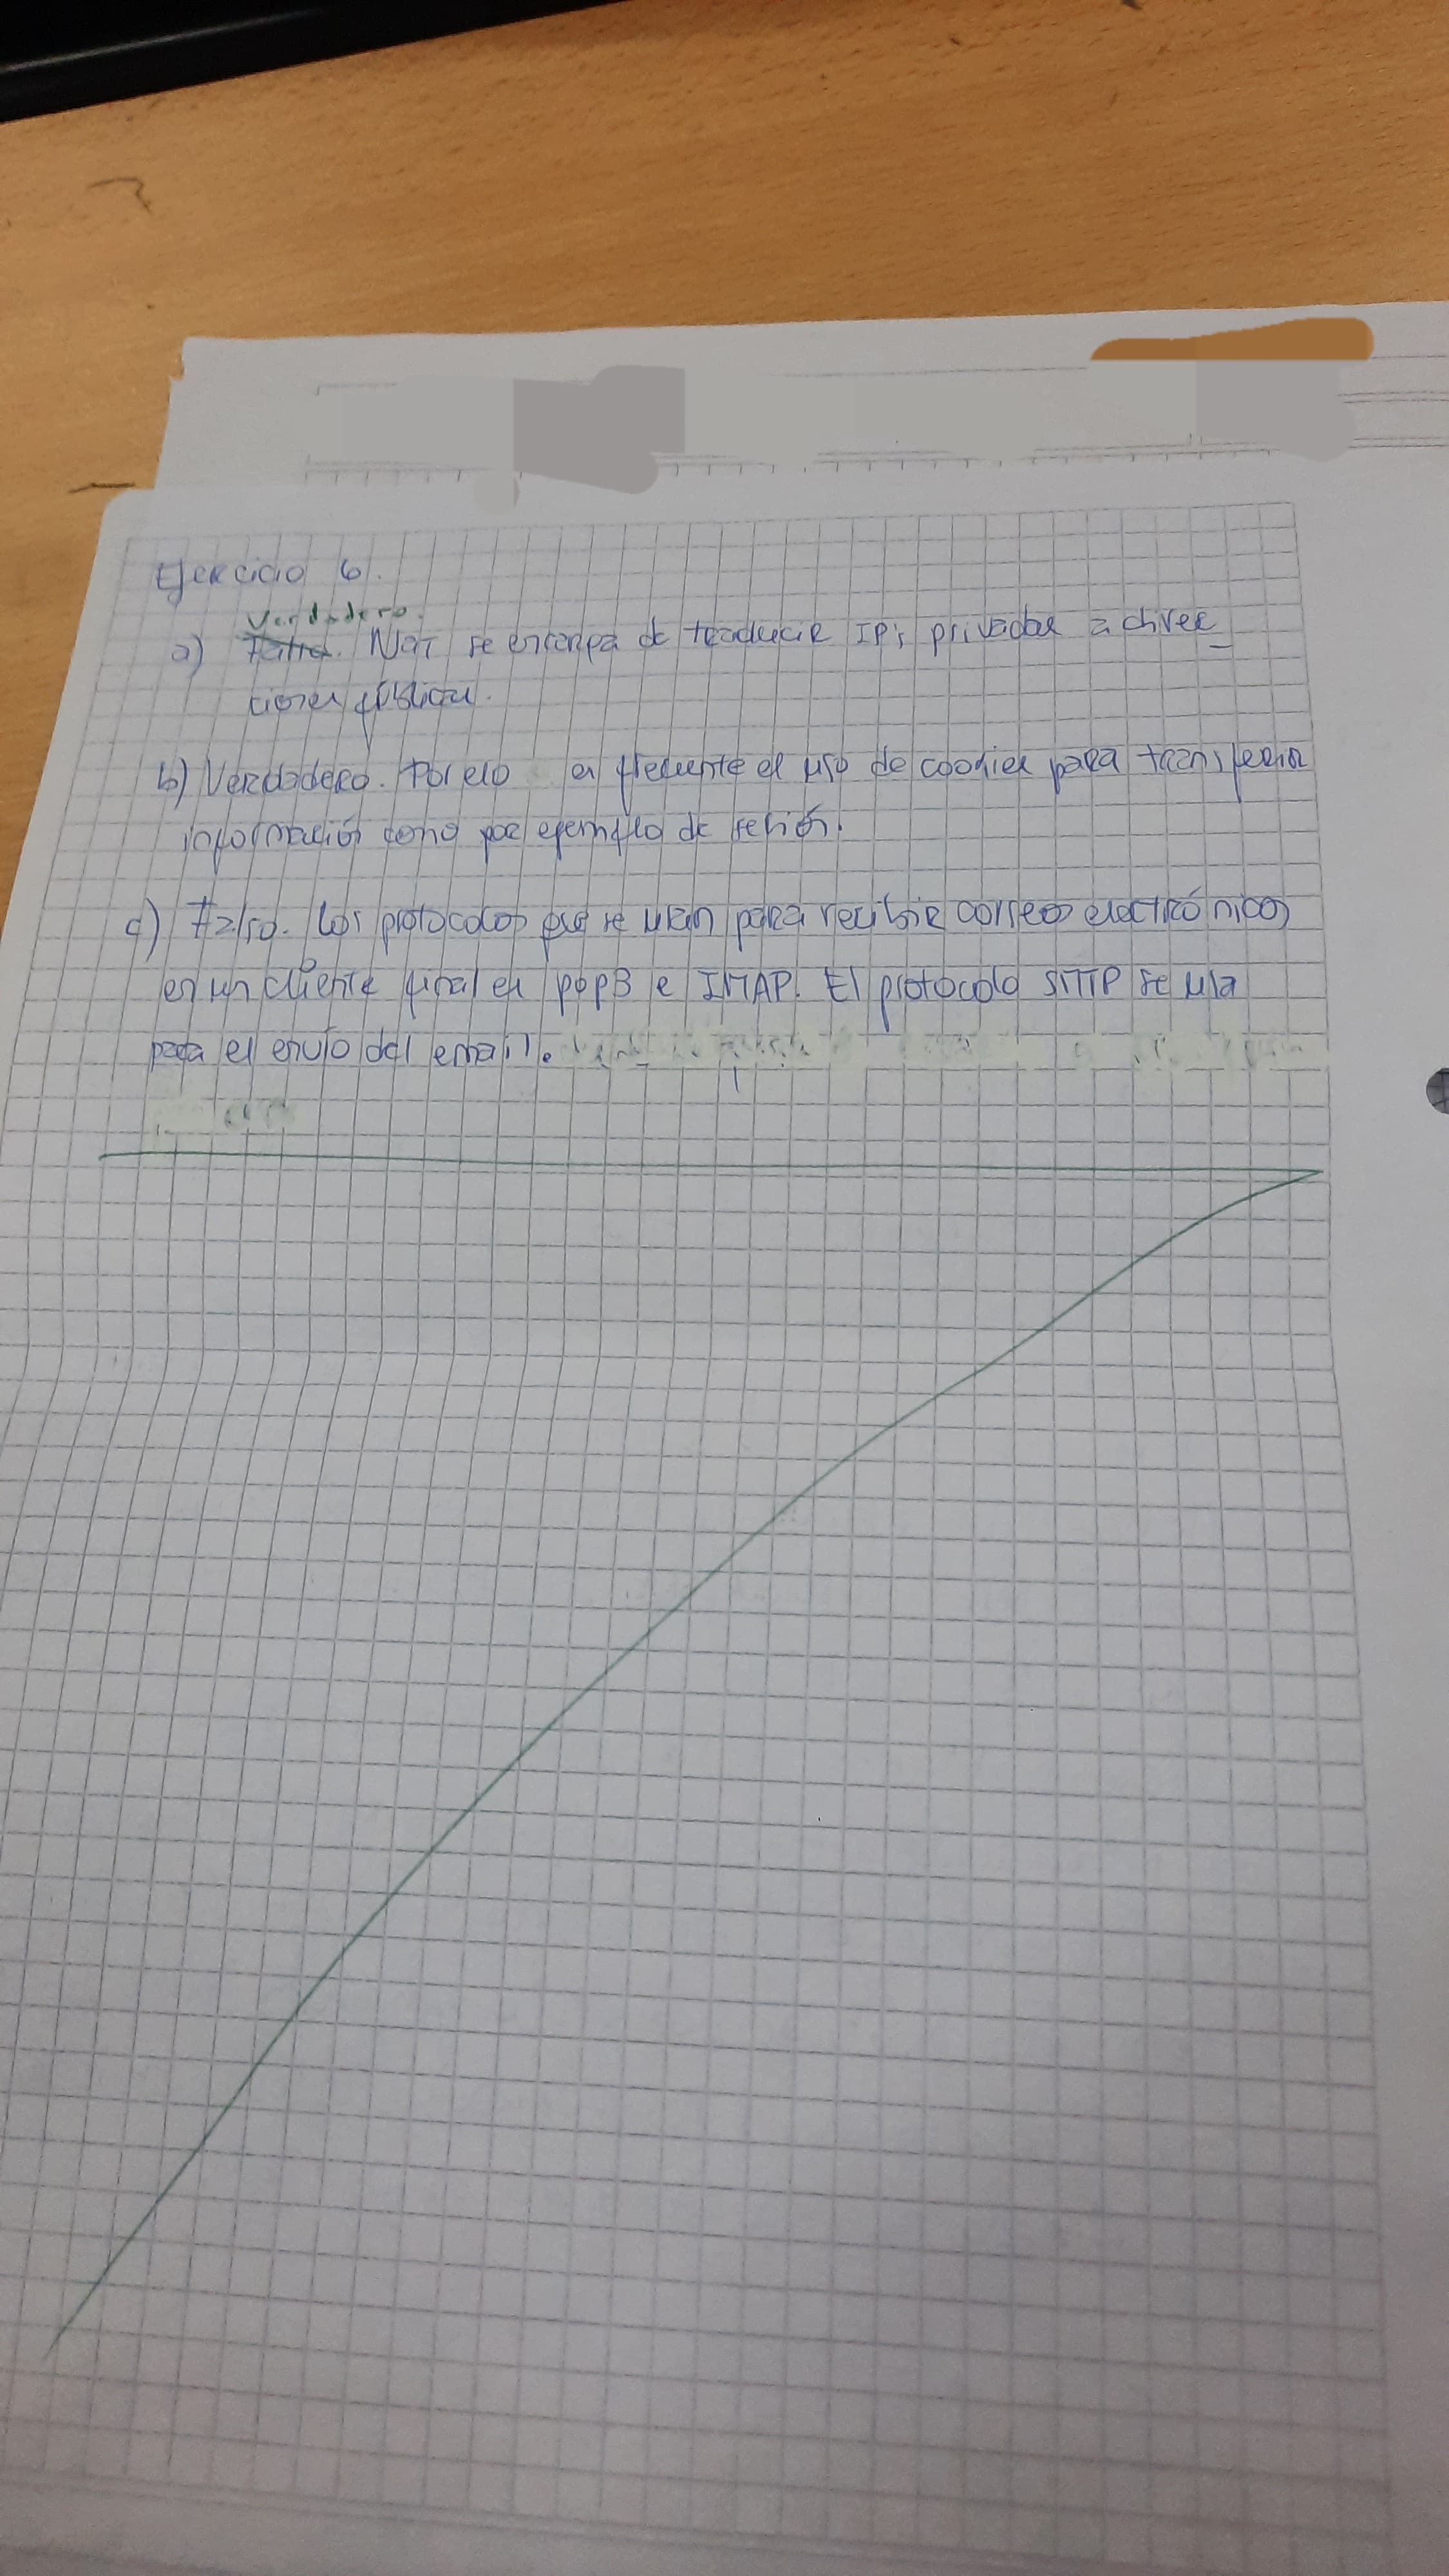 Ejercicio 6.
Verdadero.
a) Falso. NAT se encarga de traducir IPs privadas a direc-
ciones públicas.
b) Verdadero. Por ello es frecuente el uso de cookies para transferir
información como por ejemplo de sesión.
c) Falso. Los protocolos que se usan para recibir correos electrónicos
en un cliente final es POP3 e IMAP. El protocolo SMTP se usa
para el envío del email.